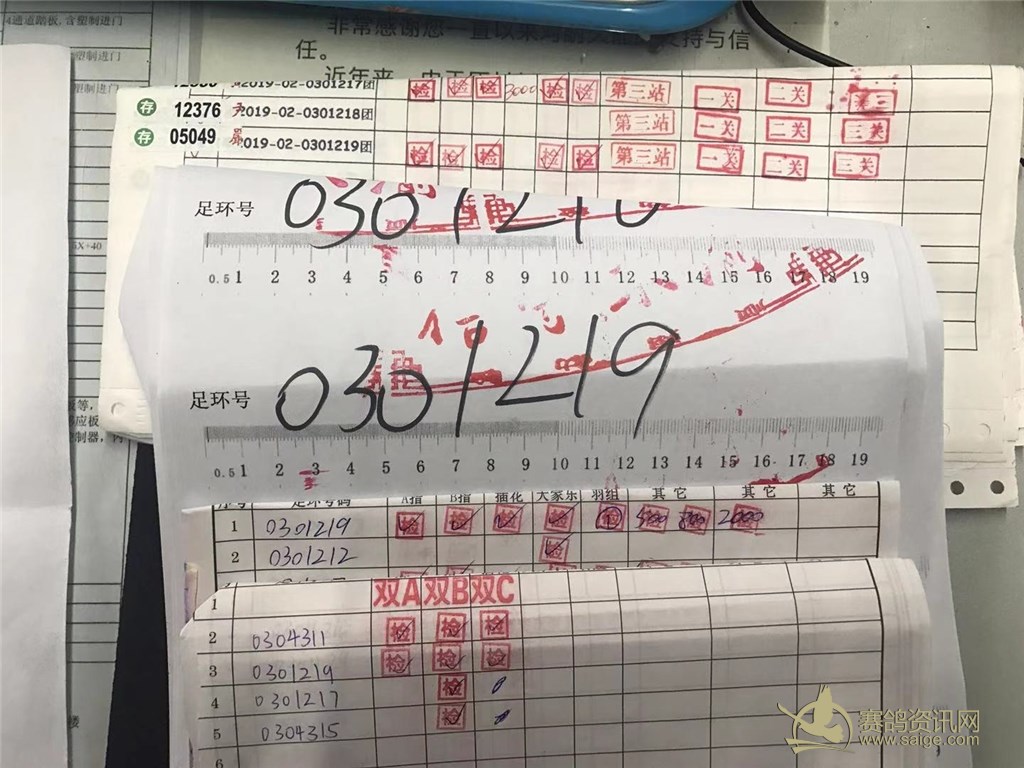 4通道踏板,含塑制进门
塑制进门
任。
2019-02-0301217团 检 检 检 3000 检 检 第三站 一关 二关
存 12376 2019-02-0301218团 第三站 一关 二关 三关
存 05049 2019-02-0301219团 检 检 检 检 检 第三站 一关 二关 三关
足环号
0.5 1 2 3 4 5 6 7 8 9 10 11 12 13 14 15 16 17 18 19
足环号 0301219
0.5 1 2 3 4 5 6 7 8 9 10 11 12 13 14 15 16 17 18 19
序号 足环号码 A指 B指 插花 大家乐 羽组 其它 其它 其它
1 0301219 检 检 检 检 2000
2 0301212 检
1 双A 双B 双C
2 0304311 检 检 检
3 0301219 检 检 检
4 0301217 检
5 0304315 检
6
赛鸽资讯网
www.saige.com